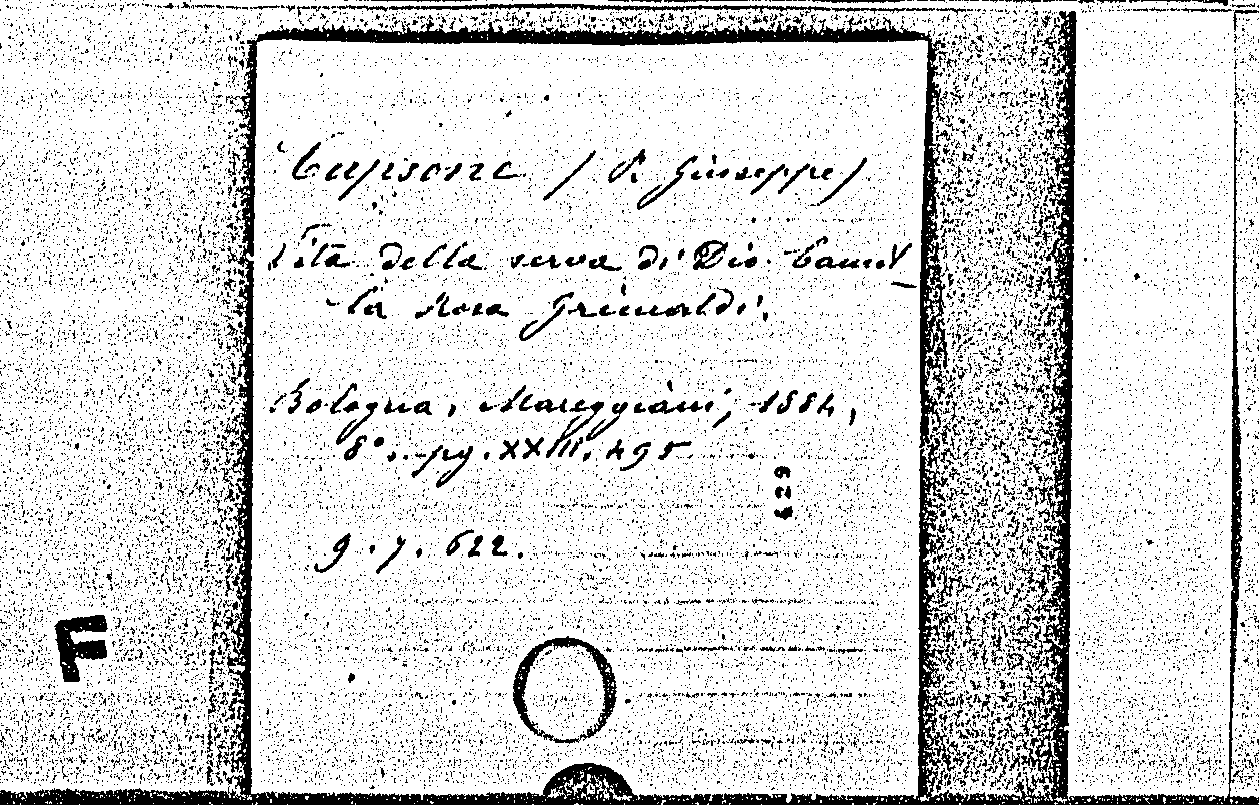 Capsoni (P. Giuseppe)
Vita della serva di Dio Camil
la Rosa Grimaldi.
Bologna, Mareggiani, 1884,
8°. pg. XXIII. 495
629
9. 7. 622.
F